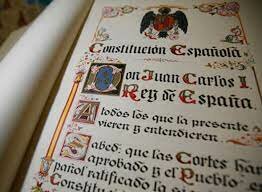 Constitución Española
Don Juan Carlos I
Rey de España,
A todos los que la presente
vieren y entendieren
Sabed: que las Cortes han
aprobado y el Pueblo
pañol ratificado la
Constitu